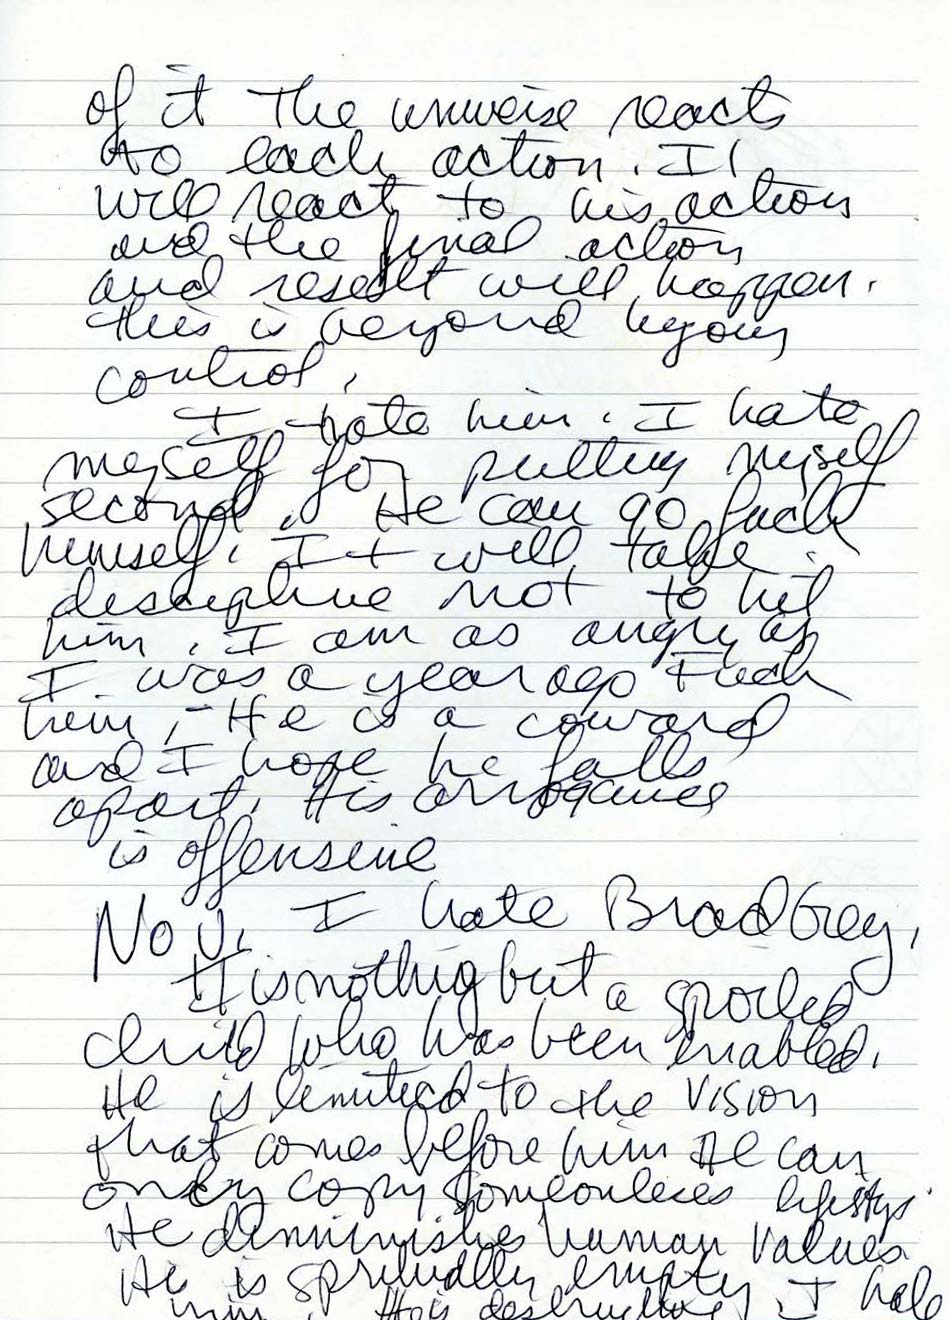 of it The universe reacts
to each action. It
will react to his action
and the final action
and result will happen.
this is beyond
control.
I hate him. I hate
myself for putting myself
second. He can go fuck
himself. It will take
discipline not to hit
him. I am as angry as
I was a year ago Fuck
him, - He is a coward
and I hope he falls
apart. His arrogance
is offensive
Nov. I hate Brad Grey.
is nothing but a spoiled
child who has been enabled.
He is limited to the vision
that comes before him He can
only copy lifestys.
He diminishes human values
He is spiritually empty. I hate
him. He is destructive